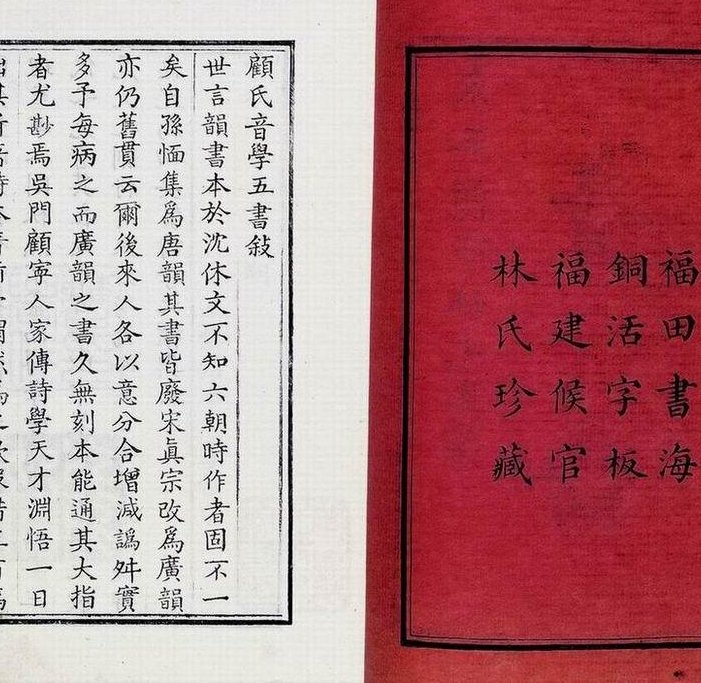 福田書海
銅活字板
福建候官
林氏珍藏
顧氏音學五書敍
世言韻書本於沈休文不知六朝時作者固不一
矣自孫愐集爲唐韻其書皆廢宋眞宗改爲廣韻
亦仍舊貫云爾後來人各以意分合增減譌舛實
多予每病之而廣韻之書久無刻本能通其大指
者尤尠焉吳門顧寧人家傳詩學天才淵悟一日